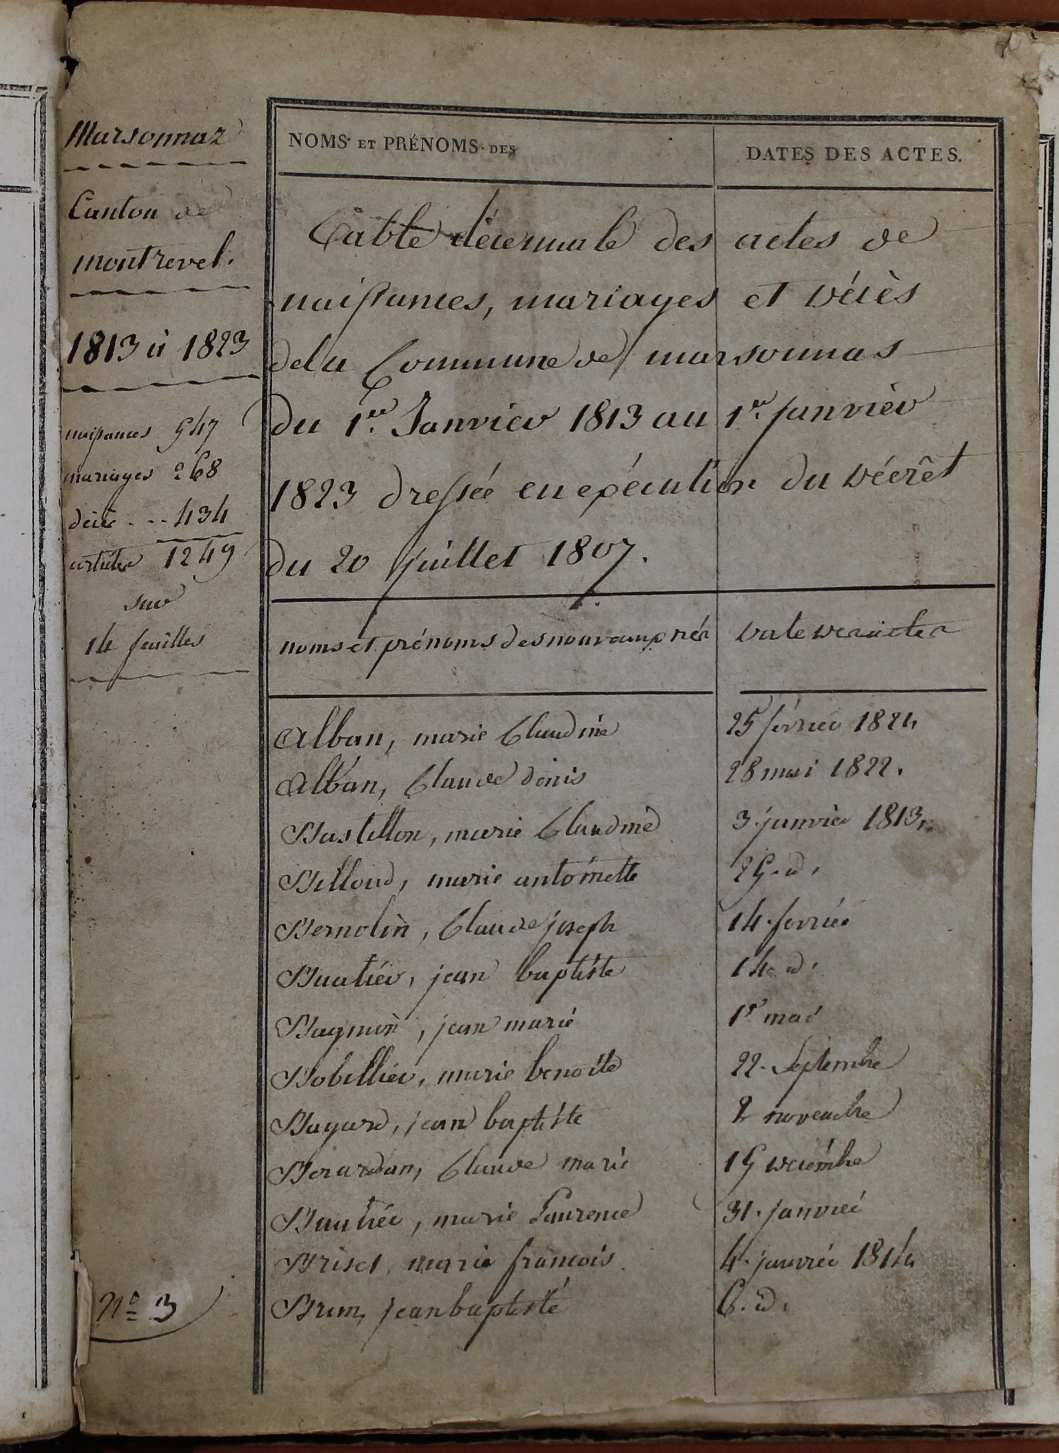 Marsonnaz
Canton de
montrevel.
1813 à 1823
naissances 547
mariages 268
décès .. 434
articles 1249
sur
14 feuilles
N° 3
NOMS ET PRÉNOMS DES
DATES DES ACTES.
Table décennale des actes de
naissances, mariages et décès
de la Commune de marsonnas
du 1er Janvier 1813 au 1er janvier
1823 dressée en exécution du décrêt
du 20 juillet 1807.
noms et prénoms des nouveaux nés
date des actes
Alban, marie Claudine
25 février 1821
Alban, Claude denis
28 mai 1822.
Bastillon, marie Claudine
3 janvier 1813.
Billoud, marie antoinette
25. d.
Bernolin, Claude joseph
14. fevrier
Buatier, jean baptiste
14. d.
jean marie
1er mai
Bobillier, marie benoite
22. Septembre
Bayard, jean baptiste
2 novembre
Berardan, Claude marie
15 decembre
Buatier, marie Laurence
31. janvier
Briset, marie francois
4. janvier 1814
Brun, jean baptiste
6. d.